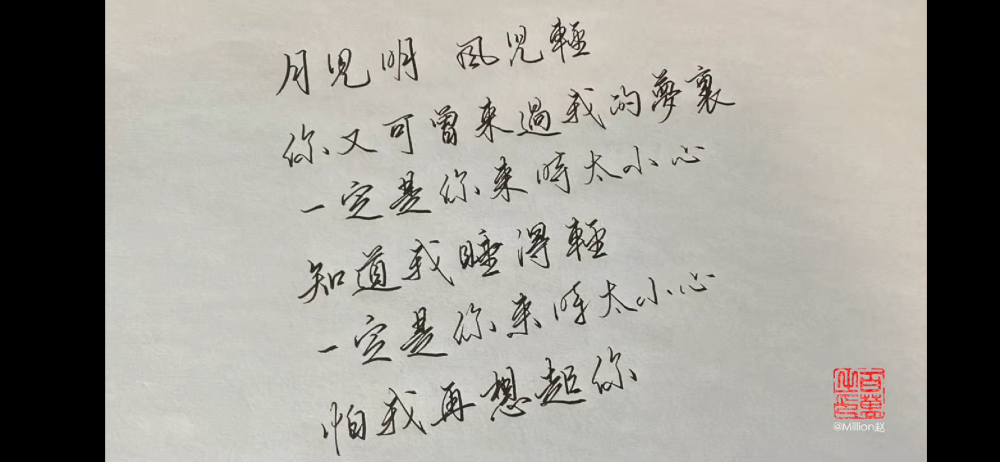 月兒明 風兒輕
你又可曾來過我的夢裏
一定是你來時太小心
知道我睡得輕
一定是你來時太小心
怕我再想起你
百萬之印
@Million赵